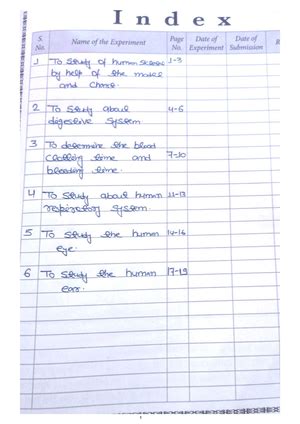 Index
S. No. Name of the Experiment Page No. Date of Experiment Date of Submission R
1 To Study of human Skeleton 1-3
by help of the model
and Chart.
2 To Study about 4-6
digestive System
3 To determine the blood
Clotting time and 7-10
bleeding time.
4 To Study about human 11-13
respiratory System.
5 To Study the human 14-16
eye.
6 To Study the human 17-19
ear.